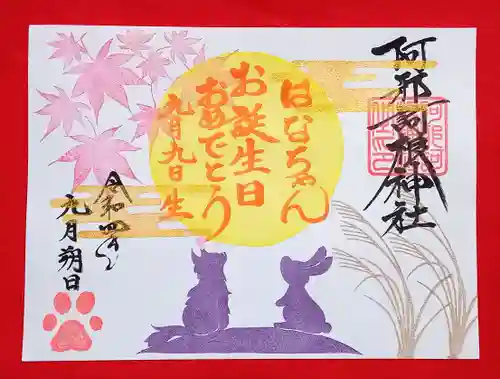 阿那訶根神社
はなちゃん
お誕生日
おめでとう
九月九日生
令和四年
九月朔日